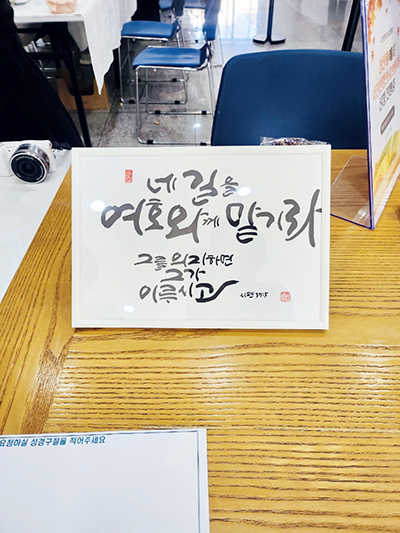 네 길을
여호와께 맡기라
그를 의지하면
그가
이루시고
시편 37:5
요청하실 성경구절을 적어주세요